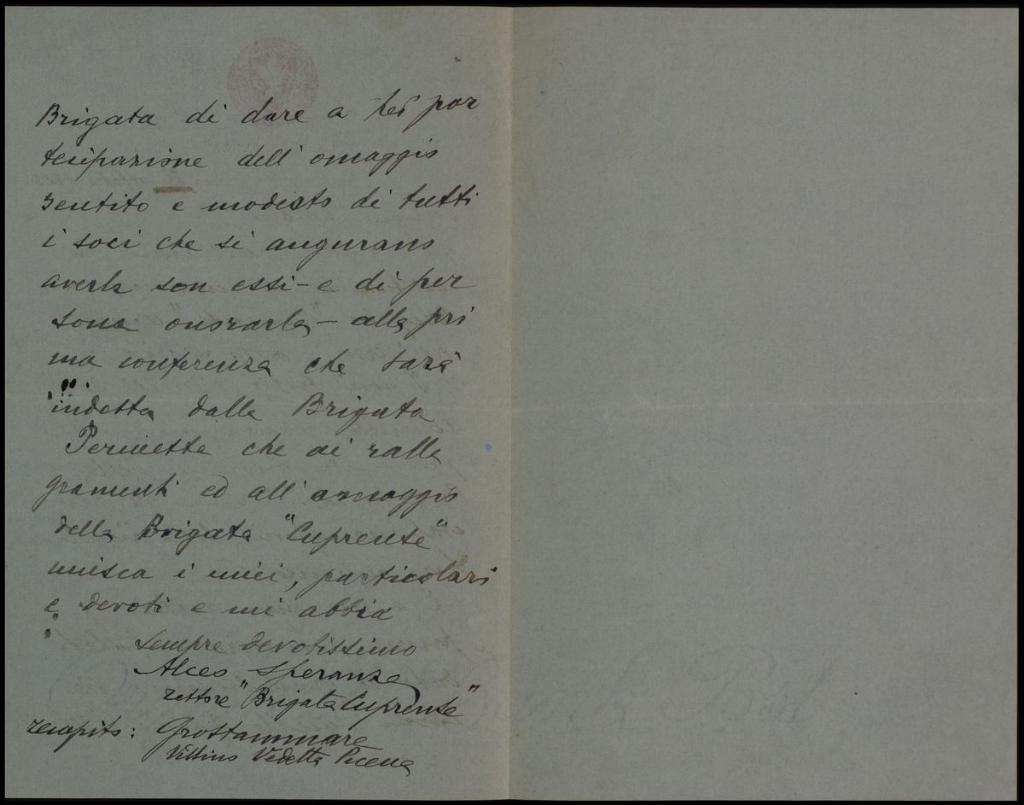 Brigata di dare a Lei par
tecipazione dell'omaggio
sentito e modesto di tutti
i soci che si augurano
averla con essi - e di per
sona onorarla - alla pri
ma conferenza che sarà
indetta dalla Brigata
Permetta che ai ralle
gramenti ed all'omaggio
della Brigata "Cuprense"
unisca i miei, particolari
e devoti e mi abbia
sempre devotissimo
Alceo Speranza
rettore "Brigata Cuprense"
recapito: Grottammare
Villino Vedetta Picena